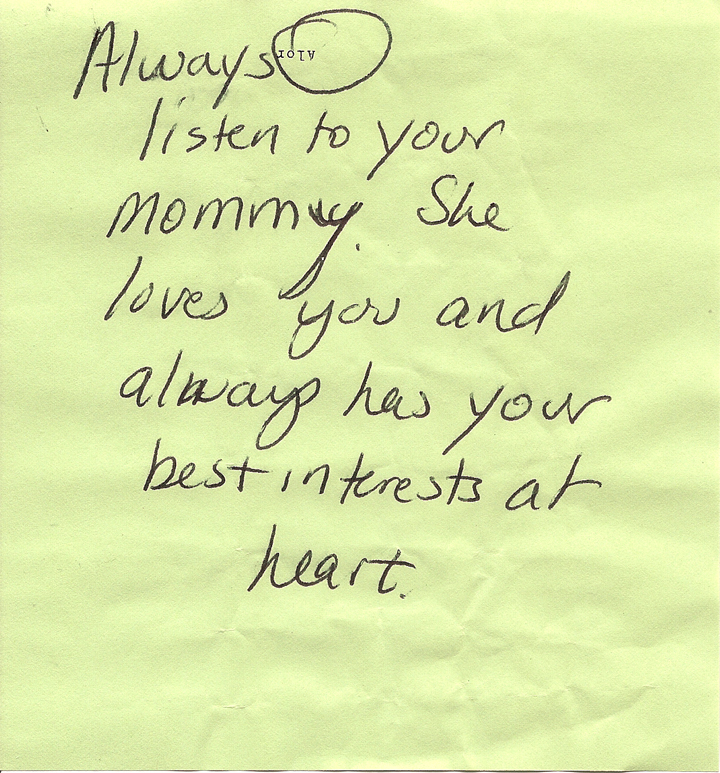 Always Alor
listen to your
mommy. She
loves you and
always has your
best interests at
heart.